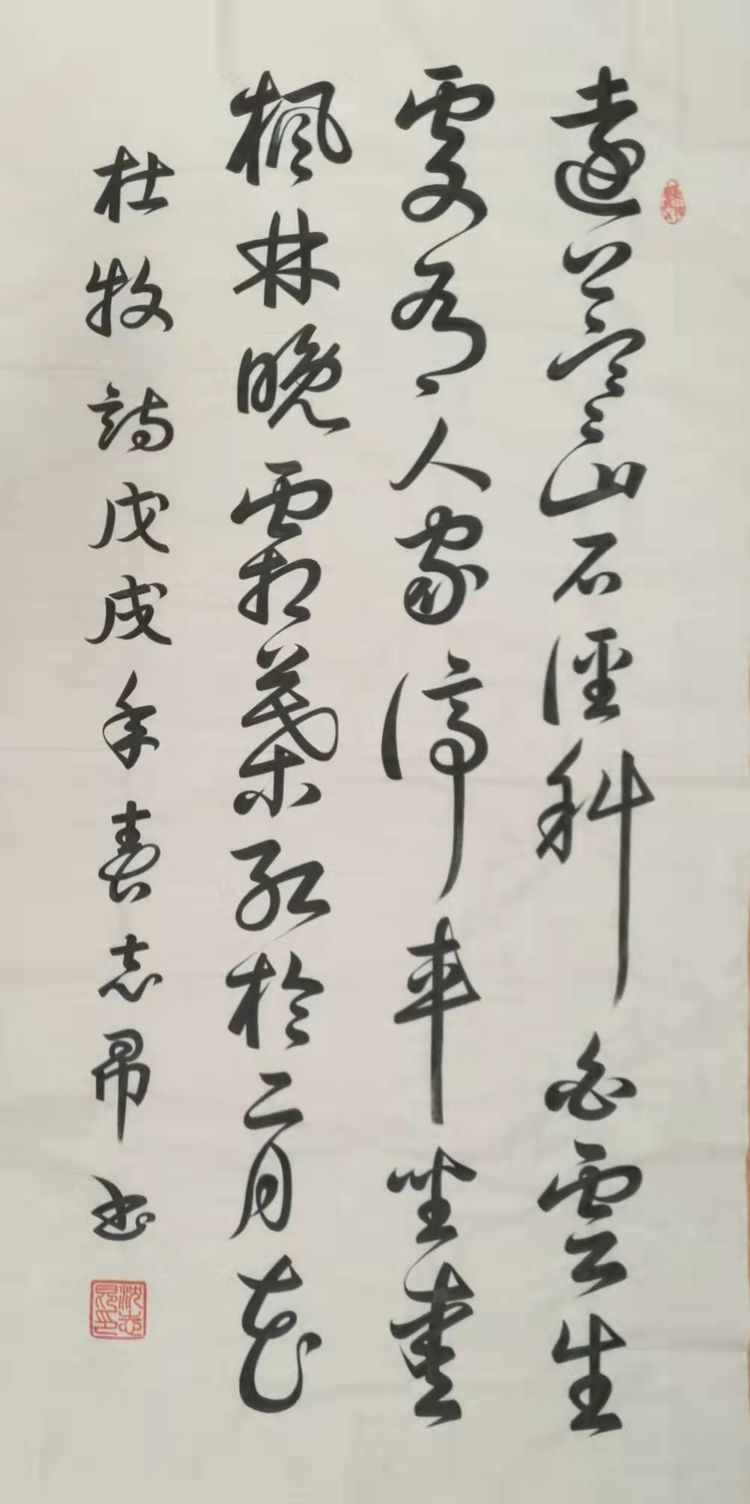 遠上寒山石徑斜白雲生
處有人家停車坐愛
楓林晚霜葉紅於二月花
杜牧詩戊戌年春志昂書
沈志昂印